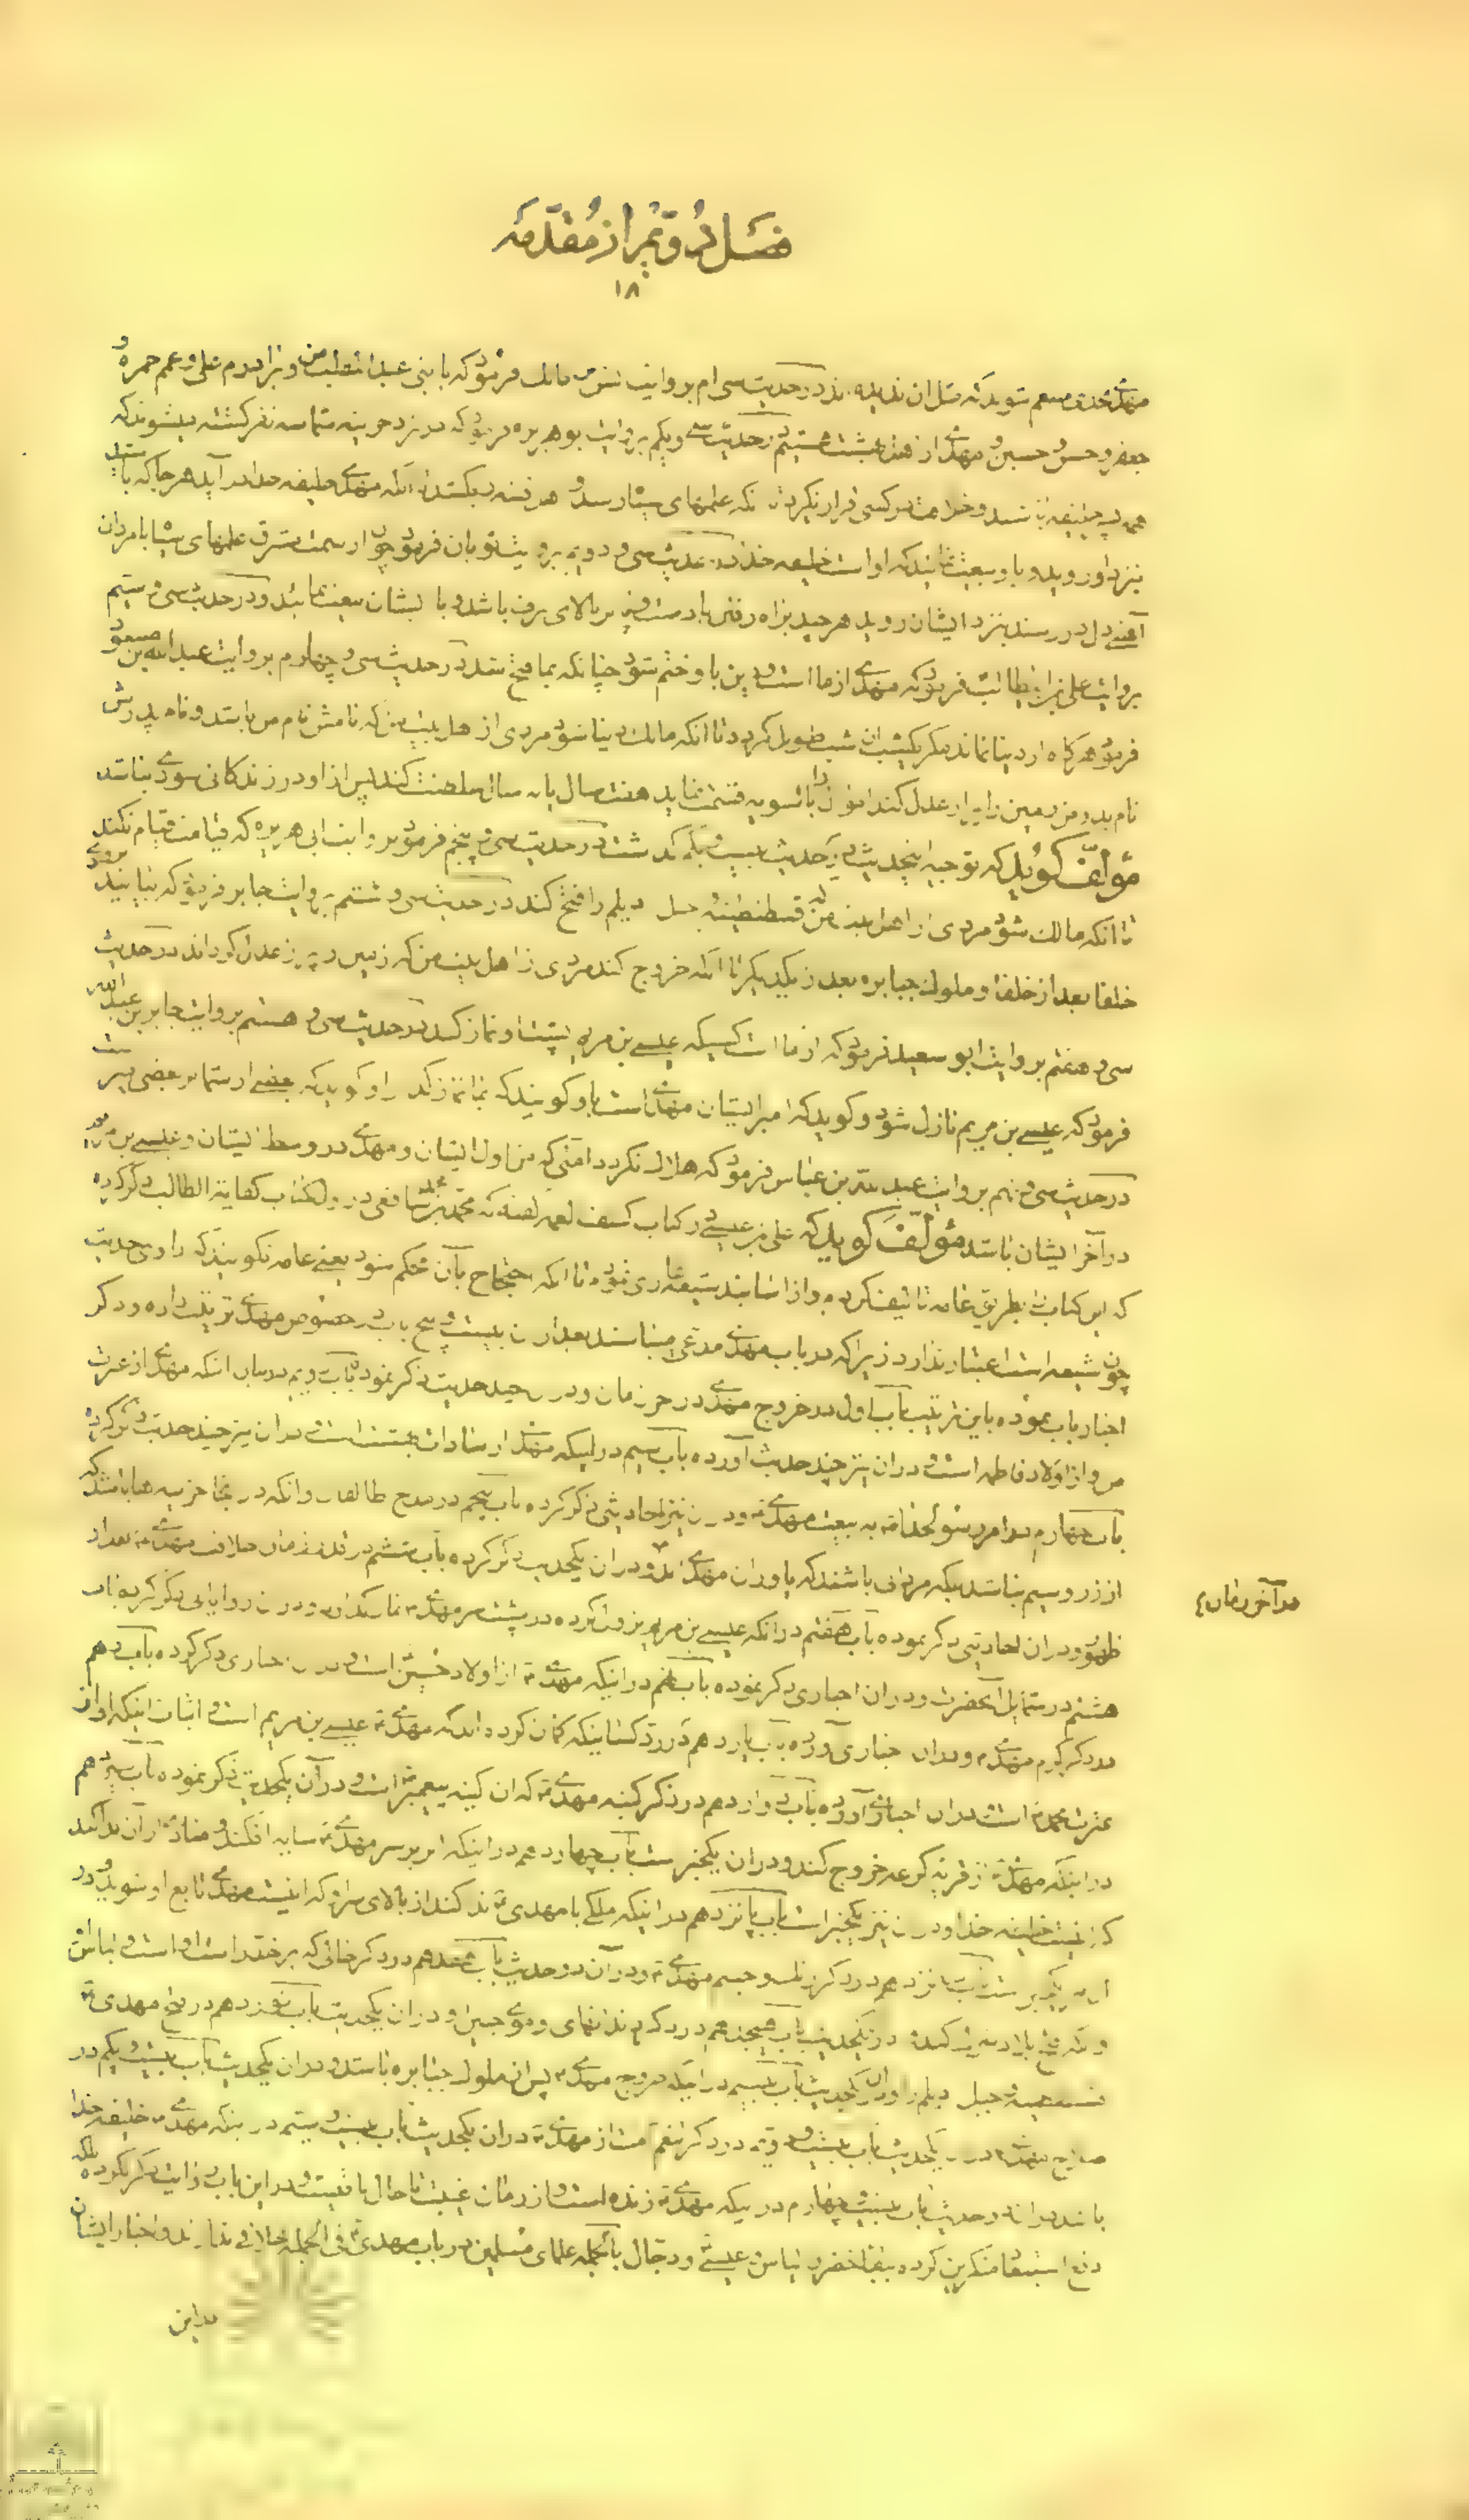 فصل دویم از مقدمه
۱۸
در حدیث سی ام بروایت انس مالک فرمود که ما بنی عبدالمطلب من و برادرم علی و عمم حمزه و
جعفر و حسن و حسین و مهدی از بهشتیم در حدیث سی و یکم بروایت ابوهریره فرمود که در نزد خزینه شما سه نفر کشته میشوند که
همه پسر خلیفه باشند و خلافت بر کسی قرار نگیرد تا آنکه علمهای سیاه رسد و هر فتنه آنکه مهدی خلیفه خدا در آید هر جا که باشد
نزد او روید و باو بیعت نمائید که او است خلیفه خدا در حدیث سی و دویم بروایت ثوبان فرمود چون از سمت مشرق علمهای سیاه با مردان
آهنین دل در رسند نزد ایشان روید هر چند براه رفتن با دست و بر بالای برف باشد و با ایشان بیعت نمائید و در حدیث سی و سیم
بروایت علی بن ابیطالب فرمود که مهدی از ما است و دین باو ختم شود چنانکه بما فتح شد در حدیث سی و چهارم بروایت عبدالله بن مسعود
فرمود هرگاه از دنیا نماند مگر یکشب آن شب طویل گردد تا آنکه مالک دنیا شود مردی از اهل بیت من که نامش نام من باشد و نام پدرش
نام پدر من زمین را پر از عدل کند اموال را بالسویه قسمت نماید هفت سال یا نه سال سلطنت کند پس از او در زندگانی سودی نباشد
مؤلف گوید که توجیه اینحدیث در حدیث بیست و یکم گذشت در حدیث سی و پنجم فرمود بروایت ابی هریره که قیامت قیام نکند
تا آنکه مالک شود مردی از اهل بیت من که قسطنطنیه و جبل دیلم را فتح کند در حدیث سی و ششم بروایت جابر فرمود که بیایند بزودی
خلفا بعد از خلفا و ملوک جبابره بعد از یکدیگر تا آنکه خروج کند مردی از اهل بیت من که زمین را پر از عدل گرداند در حدیث
سی و هفتم بروایت ابو سعید فرمود که از ما است کسیکه عیسی بن مریم پشت او نماز کند در حدیث سی و هشتم بروایت جابر بن عبد الله
فرمود که عیسی بن مریم نازل شود و گوید که امیر ایشان مهدی است باو گویند که بیا نماز کن او گوید که بعضی از شما بر بعضی امیر است
در حدیث سی و نهم بروایت عبدالله بن عباس فرمود که هلاک نگردد امتی که من اول ایشان و مهدی در وسط ایشان و عیسی بن مریم
در آخر ایشان باشد مؤلف گوید که علی بن عیسی در کتاب کشف الغمه گفته که محمد بن شافعی در اول کتاب کفایة الطالب ذکر کرده
که این کتاب را بطریق عامه تالیف کرده و از اسانید شیعه عاری نموده تا آنکه احتجاج بآن محکم شود یعنی عامه نگویند که راوی حدیث
چون شیعه است اعتبار ندارد زیرا که در باب مهدی مدعی میباشند بعد از آن بیست و پنج باب در خصوص مهدی ترتیب داده و ذکر
اخبار باب نموده باین ترتیب باب اول در خروج مهدی در آخر زمان و در آن چند حدیث ذکر نموده باب دویم در بیان آنکه مهدی از عترت
من و از اولاد فاطمه است و در آن نیز چند حدیث آورده باب سیم در اینکه مهدی از سادات بهشت است و در آن نیز چند حدیث ذکر کرده
باب چهارم در امر رسول خدا به بیعت مهدی و در آن نیز احادیثی ذکر کرده باب پنجم در مدح طالقان و آنکه در آنجا خزینه ها باشد که
از زر و سیم نباشد بلکه مردان باشند که یاوران مهدی اند و در آن یکحدیث ذکر کرده باب ششم در زمان خلافت مهدی بعد از
ظهور و در آن احادیثی ذکر نموده باب هفتم در آنکه عیسی بن مریم نزول کرده در پشت سر مهدی نماز کند و در آن روایاتی ذکر کرده باب
هشتم در شمایل آنحضرت و در آن اخباری ذکر نموده باب نهم در اینکه مهدی از اولاد حسین است و در آن اخباری ذکر کرده باب دهم
در ذکر کرم مهدی و در آن اخباری آورده باب یازدهم در رد کسانیکه گمان کرده اند که مهدی عیسی بن مریم است و اثبات اینکه او از
عترت محمد است و در آن اخباری آورده باب دوازدهم در ذکر کنیه مهدی که آن کنیه پیغمبر است و در آن یکحدیث ذکر نموده باب سیزدهم
در اینکه مهدی از قریه کرعه خروج کند و در آن یکخبر است باب چهاردهم در اینکه ابر بر سر مهدی سایه افکند و منادی از آن ندا کند
که اینست خلیفه خدا و در آن نیز یکخبر است باب پانزدهم در اینکه ملکی با مهدی ندا کند از بالای سر او که اینست مهدی تابع او شوید و در
آن نیز یکخبر است باب شانزدهم در ذکر رنگ و جسم مهدی و در آن دو حدیث باب هفدهم در ذکر خالی که بر خد راست او است و لباس
و آنکه فتح بلاد شرک کند در آن یکحدیث باب هیجدهم در ذکر دندانهای و موی جبین او و در آن یکحدیث باب نوزدهم در فتح مهدی
قسطنطنیه و جبل دیلم را و در آن یکحدیث باب بیستم در اینکه خروج مهدی پس از ملوک جبابره باشد و در آن یکحدیث باب بیست و یکم در
صلاح مهدی در آن یکحدیث باب بیست و دویم در ذکر تنعم امت از مهدی در آن یکحدیث باب بیست و سیم در اینکه مهدی خلیفه خدا
باشد در آن دو حدیث باب بیست و چهارم در اینکه مهدی زنده است و از زمان غیبت تا حال باقیست و در این باب روایت ذکر نکرده بلکه
دفع استبعاد منکرین کرده ببقاء خضر و الیاس و عیسی و دجال بالجمله علمای مسلمین در باب مهدی فی الجمله خلافی ندارند و اخبار ایشان
در آخر زمان
در این